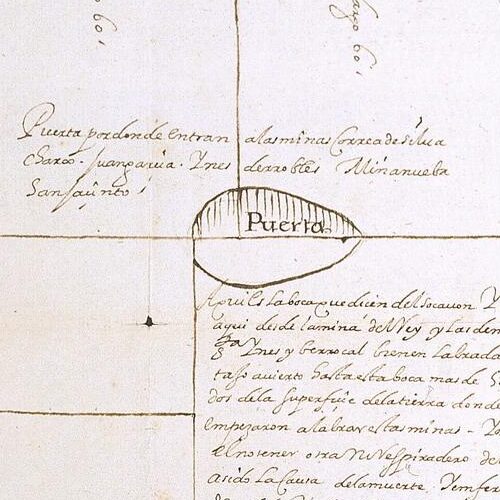 argo 60
60
Puerta por donde entran a las minas Correa de silua
Charco. Juan garcia. Ynes de rrobles Mina nueba
San Jacinto
Puerta
Aqui Es la boca que dicen del socauon Y
aqui desde la mina del Rey y las de
Ynes y berrocal bienen labrada
tajo auierto hasta esta boca mas de
dos de la superfiçie de la tierra donde
empezaron a labrar estas minas - Y
El no tener otra N Respiradero de
a sido La Causa de la muerte Y enfer